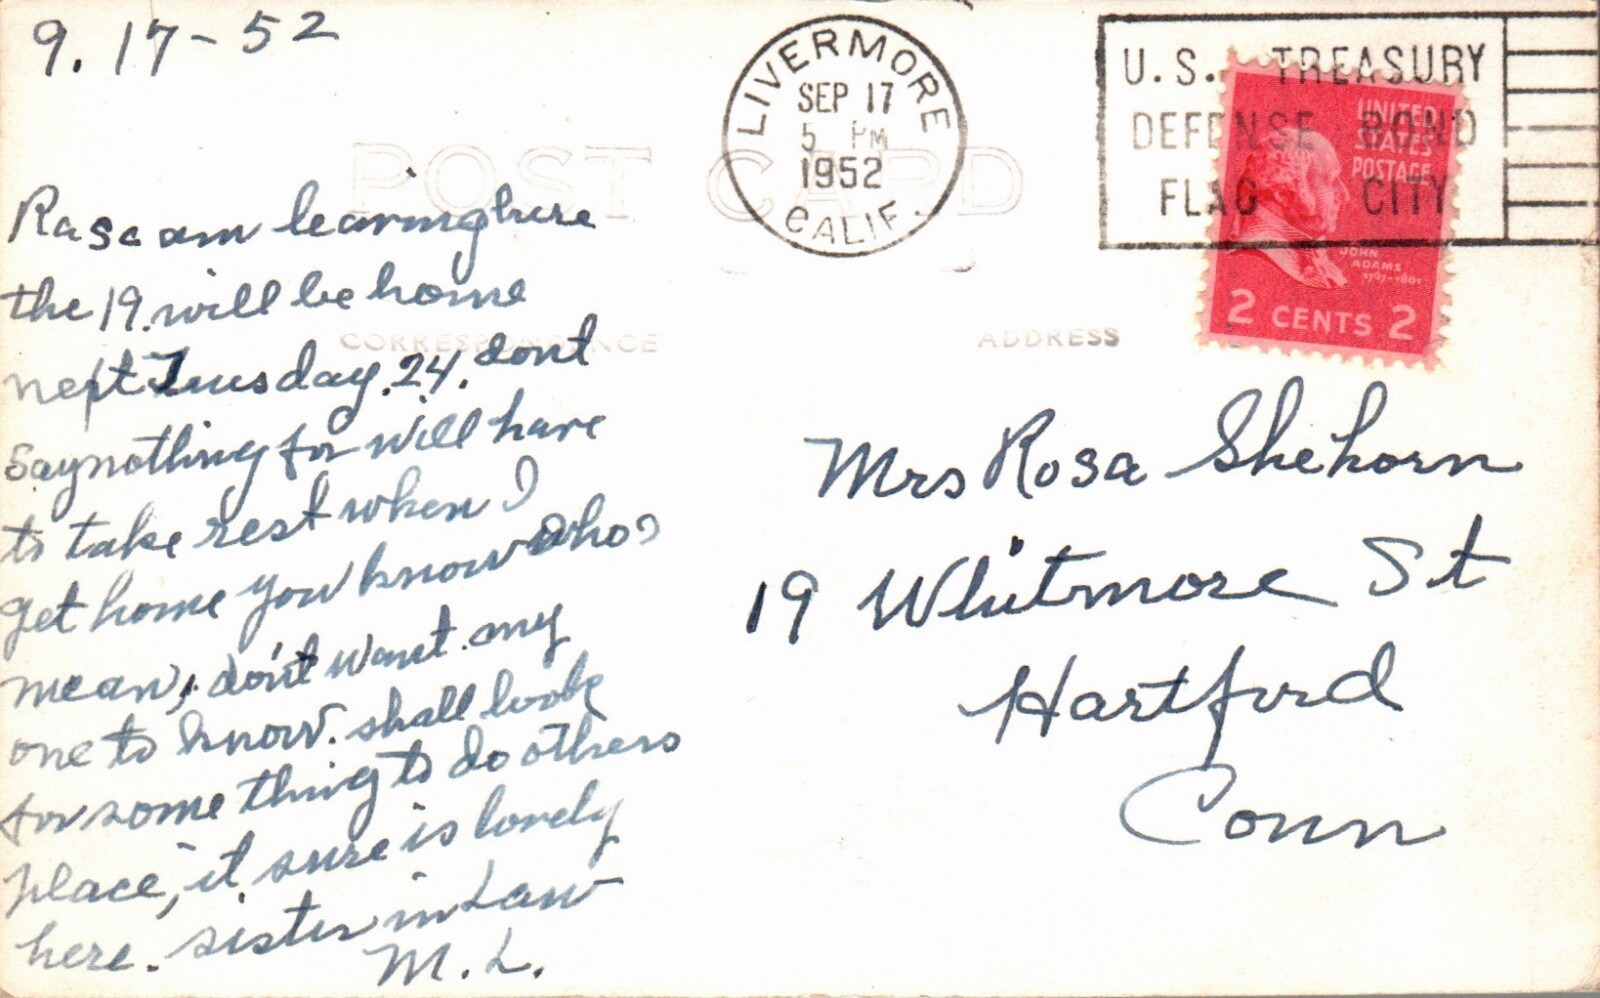 9. 17-52
LIVERMORE
SEP 17
5 PM
1952
CALIF.
U.S. TREASURY
DEFENSE BOND
FLAG CITY
UNITED
STATES
POSTAGE
JOHN
ADAMS
1797-1801
2 CENTS 2
POST CARD
CORRESPONDENCE
ADDRESS
Rasa am leaving here
the 19. will be home
nept Tuesday. 24. dont
say nothing for will have
to take rest when I
get home you know who
mean, don't want. any
one to know. shall look
for some thing to do others
place, it sure is lovely
here. sister in Law
M. L.
Mrs Rosa Shehorn
19 Whitmore St
Hartford
Conn